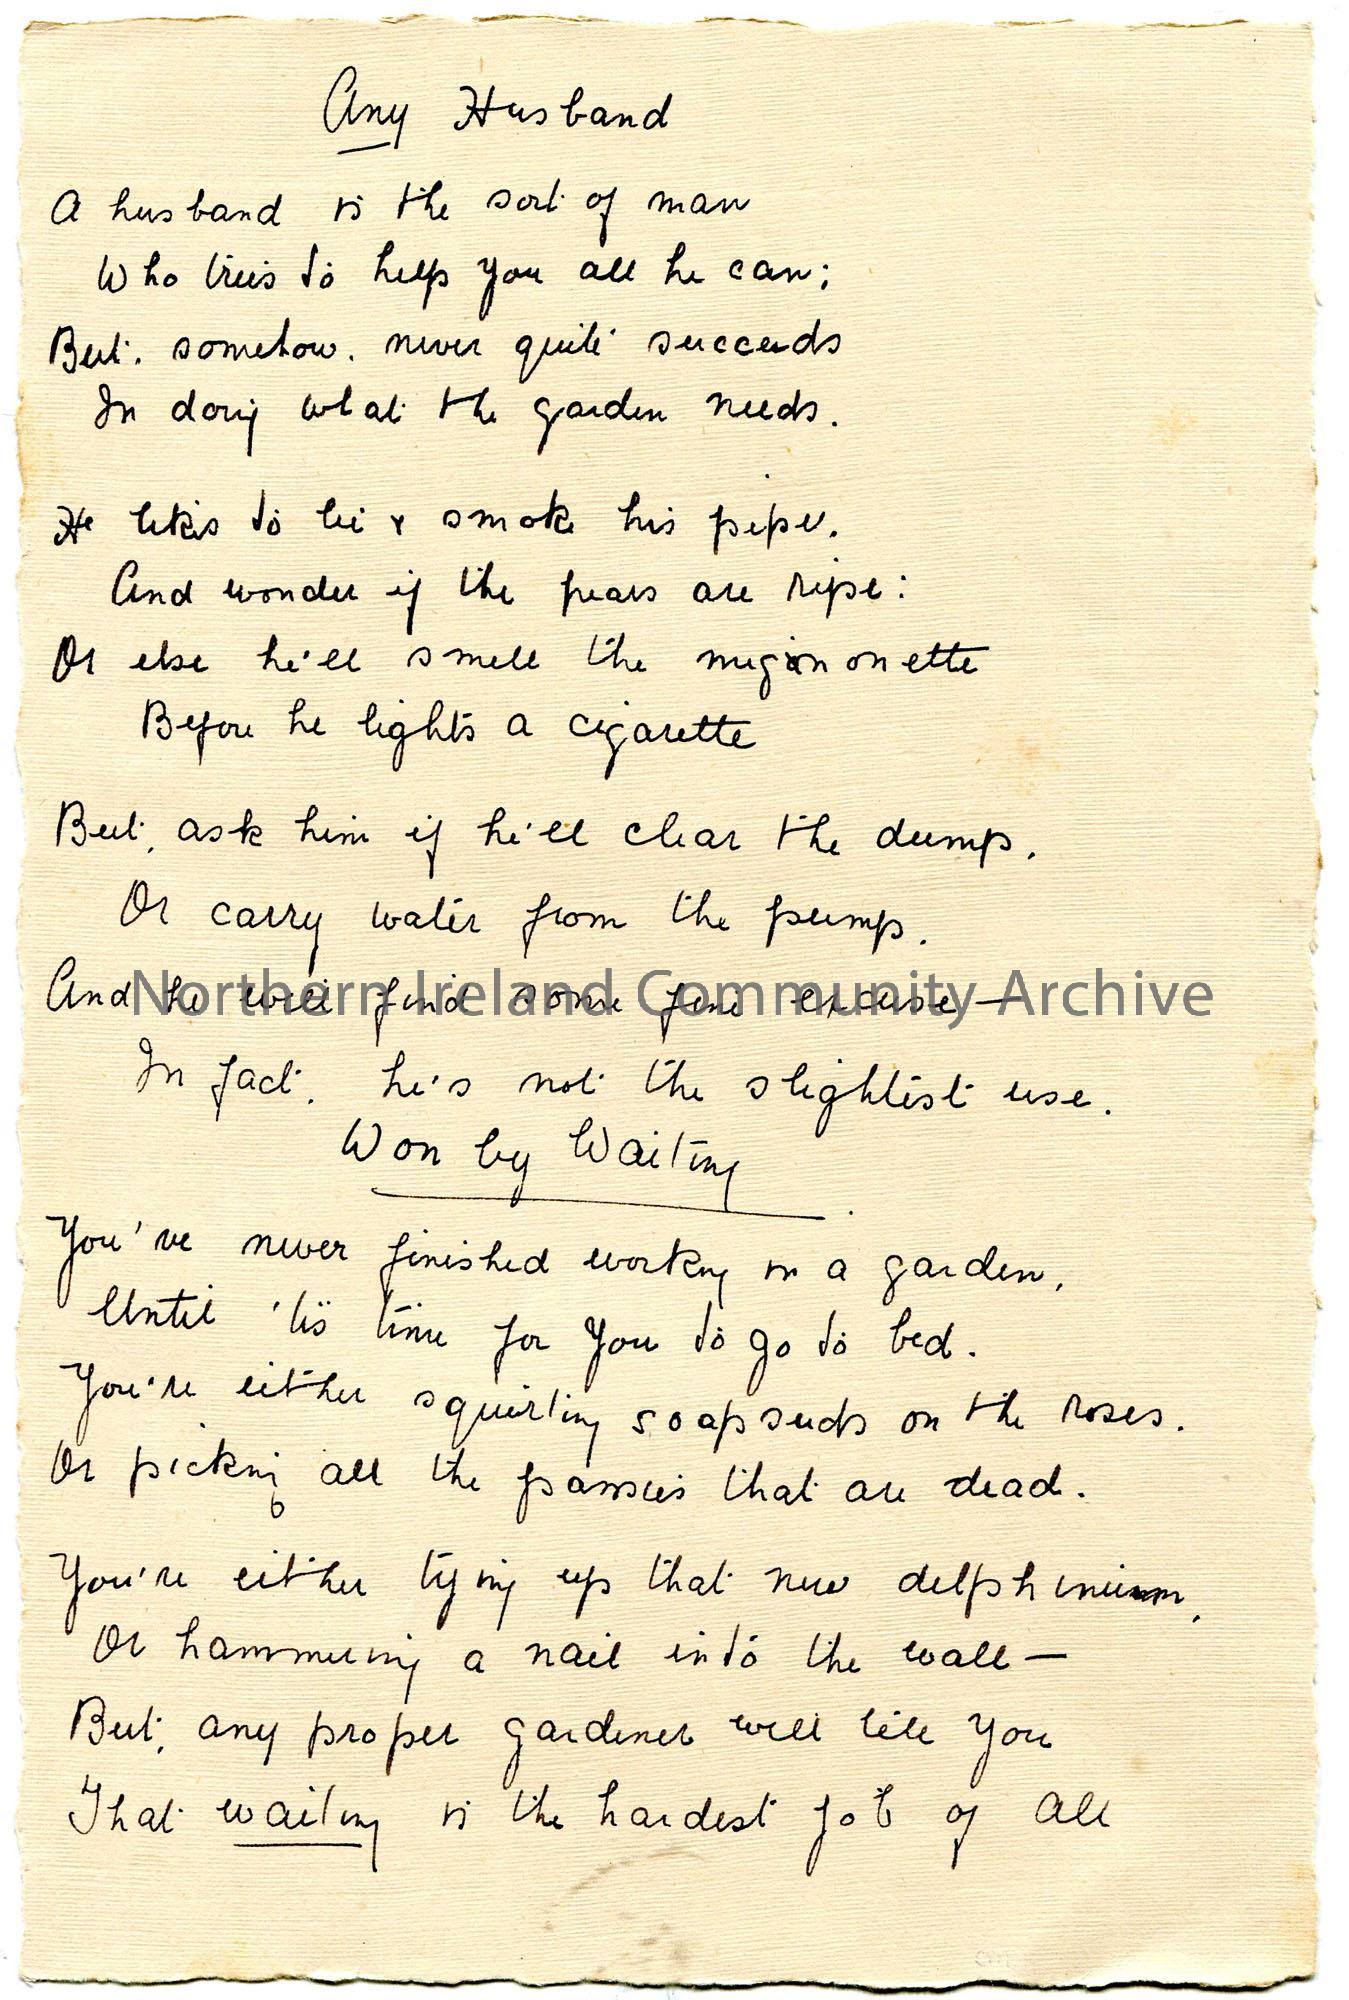 Any Husband
A husband is the sort of man
Who tries to help you all he can;
But. somehow. never quite succeeds
In doing what the garden needs.
He likes to lie & smoke his pipe.
And wonder if the pears are ripe:
Or else he'll smell the mignonette
Before he lights a cigarette
But, ask him if he'll clear the dump.
Or carry water from the pump.
And he will find some fine excuse —
Northern Ireland Community Archive
In fact, he's not the slightest use.
Won by Waiting
You've never finished working in a garden,
Until 'tis time for you to go to bed.
You're either squirting soapsuds on the roses.
Or picking all the pansies that are dead.
You're either tying up that new delphinium,
Or hammering a nail into the wall —
But, any proper gardener will tell you
That waiting is the hardest job of all